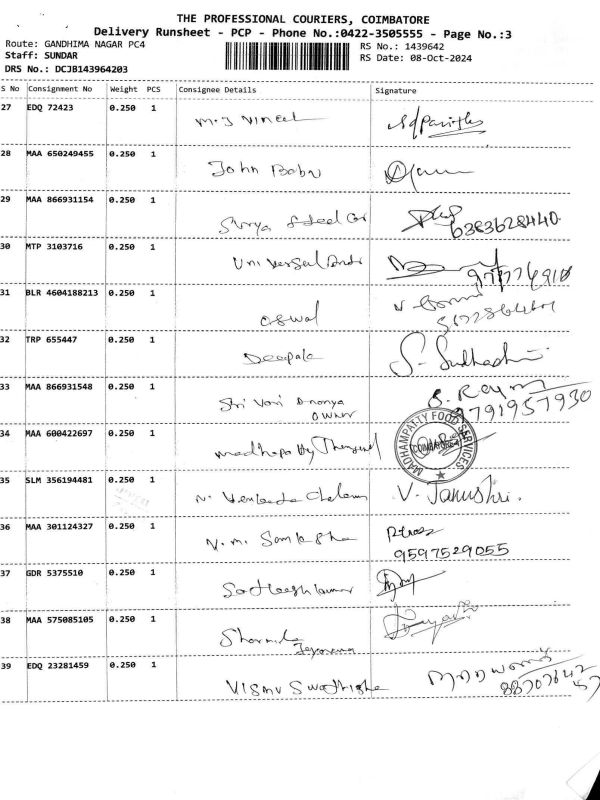 THE PROFESSIONAL COURIERS, COIMBATORE
Delivery Runsheet - PCP - Phone No.:0422-3505555 - Page No.:3
Route: GANDHIMA NAGAR PC4
RS No.: 1439642
Staff: SUNDAR
RS Date: 08-Oct-2024
DRS No.: DCJB143964203
S No Consignment No Weight PCS Consignee Details Signature
27 EDQ 72423 0.250 1 M.J Vineel
28 MAA 650249455 0.250 1 John Babu
29 MAA 866931154 0.250 1 Surya Steel Cor
6383628440
30 MTP 3103716 0.250 1 Universal
31 BLR 4604188213 0.250 1 Oswal
32 TRP 655447 0.250 1 Deepala S. Sudhashini
33 MAA 866931548 0.250 1 Sri Vari
owner
9791957930
34 MAA 600422697 0.250 1
MADHAMPATTY FOOD SERVICES
COIMBATORE
35 SLM 356194481 0.250 1 N. Venkatachalam V. Janushri.
36 MAA 301124327 0.250 1 N.M.
9597529055
37 GDR 5375510 0.250 1 Satheeshkumar
38 MAA 575085105 0.250 1 Sharmila
39 EDQ 23281459 0.250 1 Vismu Swathisha